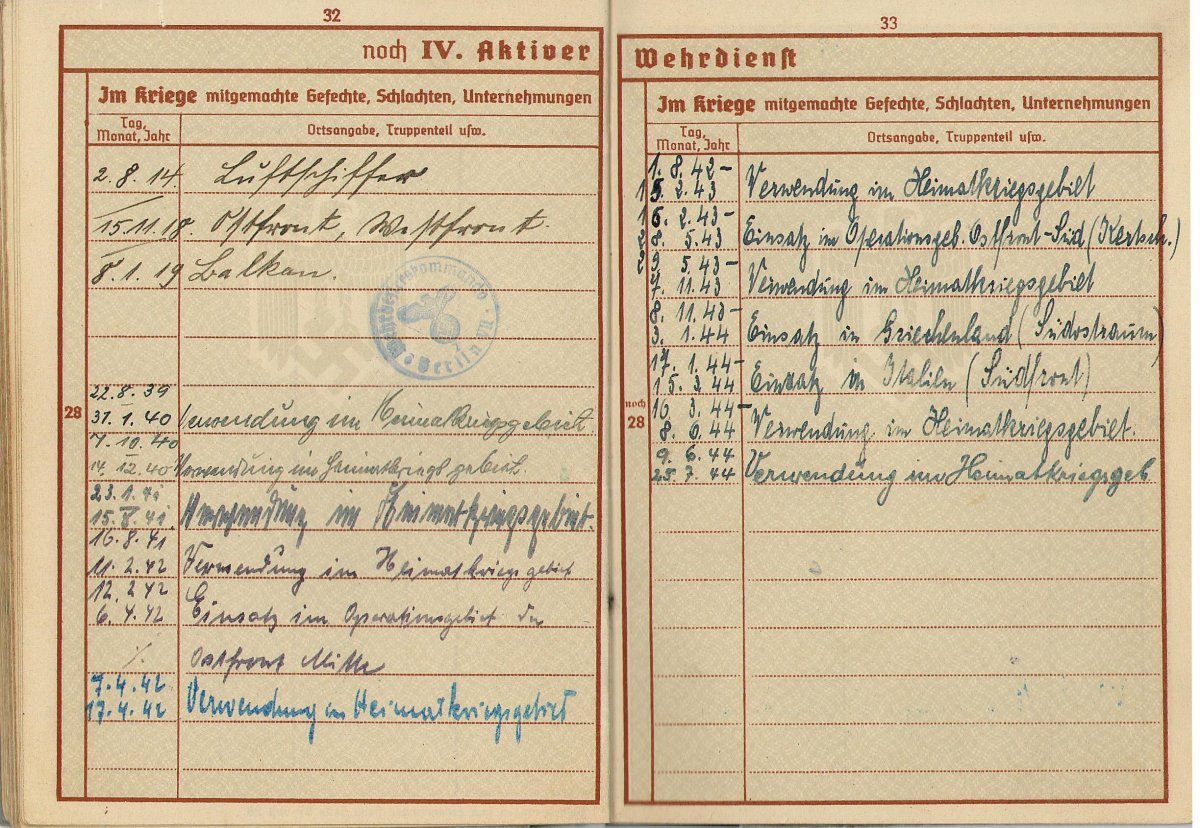 32
noch IV. Aktiver
Im Kriege mitgemachte Gefechte, Schlachten, Unternehmungen
Tag, Monat, Jahr
Ortsangabe, Truppenteil usw.
2. 8. 14. Luftschiffer
15.11.18. Ostfront, Westfront.
8. 1. 19 Balkan.
Berlin
28
22. 8. 39
31. 1. 40 Verwendung im Heimatkriegsgebiet.
7. 10. 40
14. 12. 40 Verwendung im Heimatkriegsgebiet.
23. 1. 41
15. 8. 41. Verwendung im Heimatkriegsgebiet.
16. 8. 41
11. 2. 42 Verwendung im Heimatkriegsgebiet
12. 2 42
6. 4. 42 Einsatz im Operationsgebiet der
Ostfront Mitte
7. 4. 42
17. 4. 42 Verwendung im Heimatkriegsgebiet
33
Wehrdienst
Im Kriege mitgemachte Gefechte, Schlachten, Unternehmungen
Tag, Monat, Jahr
Ortsangabe, Truppenteil usw.
1. 8. 42 –
15. 2. 43 Verwendung im Heimatkriegsgebiet
16. 2. 43 –
8. 5. 43 Einsatz im Operationsgeb. Ostfront-Süd (Kertsch.)
9. 5. 43 –
7. 11. 43 Verwendung im Heimatkriegsgebiet
8. 11. 43 –
3. 1. 44 Einsatz in Griechenland (Südostraum)
17. 1. 44 –
15. 3. 44 Einsatz in Italien (Südfront)
noch 28
16. 3. 44 –
8. 6. 44 Verwendung im Heimatkriegsgebiet.
9. 6. 44
25. 7. 44 Verwendung im Heimatkriegsgeb